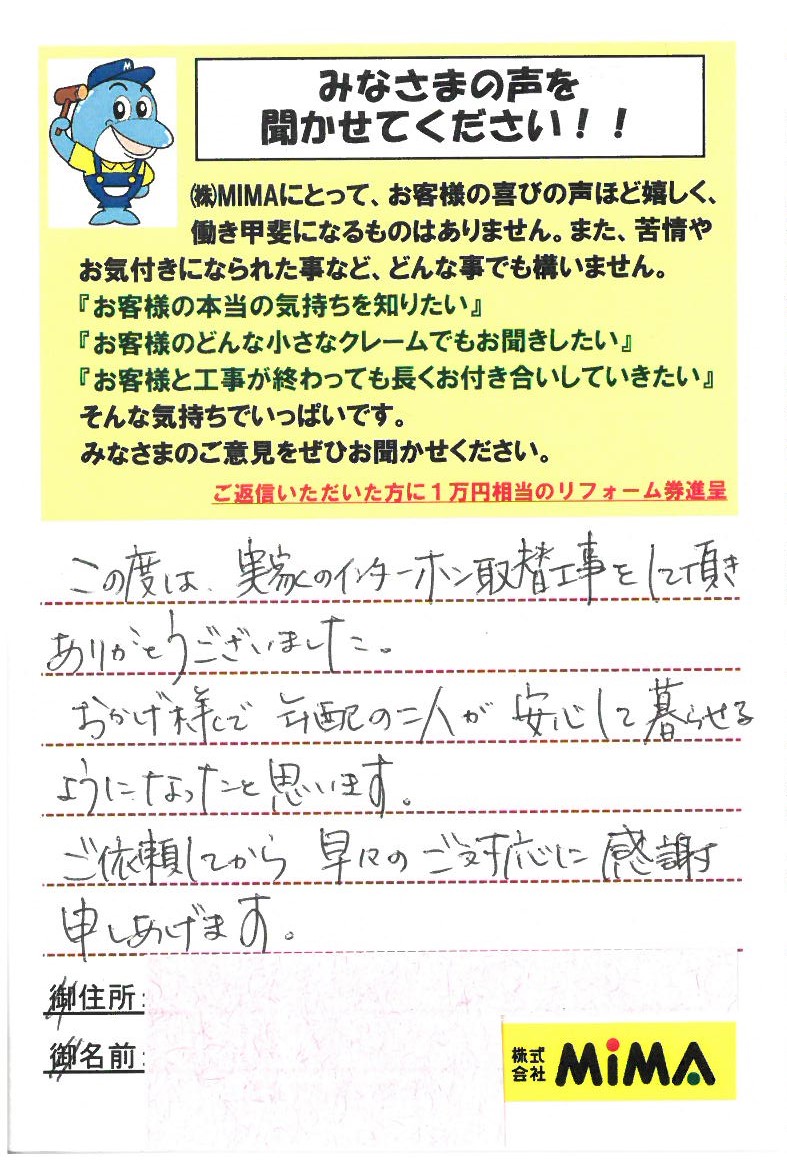 M
みなさまの声を
聞かせてください！！
㈱MIMAにとって、お客様の喜びの声ほど嬉しく、
働き甲斐になるものはありません。また、苦情や
お気付きになられた事など、どんな事でも構いません。
『お客様の本当の気持ちを知りたい』
『お客様のどんな小さなクレームでもお聞きしたい』
『お客様と工事が終わっても長くお付き合いしていきたい』
そんな気持ちでいっぱいです。
みなさまのご意見をぜひお聞かせください。
ご返信いただいた方に１万円相当のリフォーム券進呈
この度は、実家のインターホン取替工事をして頂き
ありがとうございました。
おかげ様で 年配の二人が 安心して暮らせる
ようになったと思います。
ご依頼してから 早々のご対応に感謝
申しあげます。
御住所：
御名前：
株式
会社 MiMA